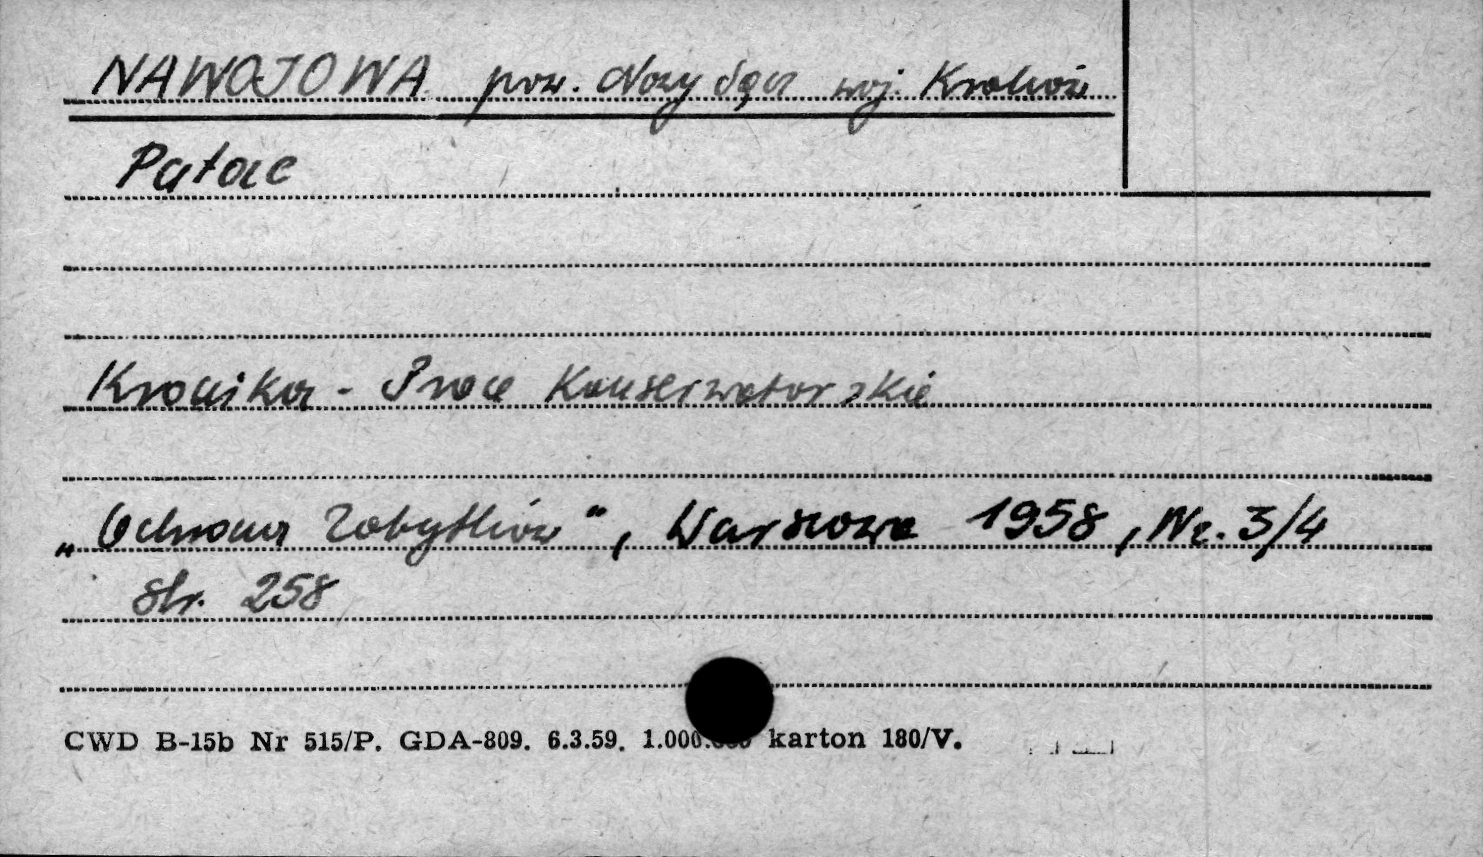 NAWOJOWA pow. Nowy Sącz woj. Kraków
Pałac
Kronika - Prace Konserwatorskie
„Ochrona Zabytków", Warszawa 1958, Nr. 3/4
str. 258
CWD B-15b Nr 515/P. GDA-809. 6.3.59. 1.000.000 karton 180/V.